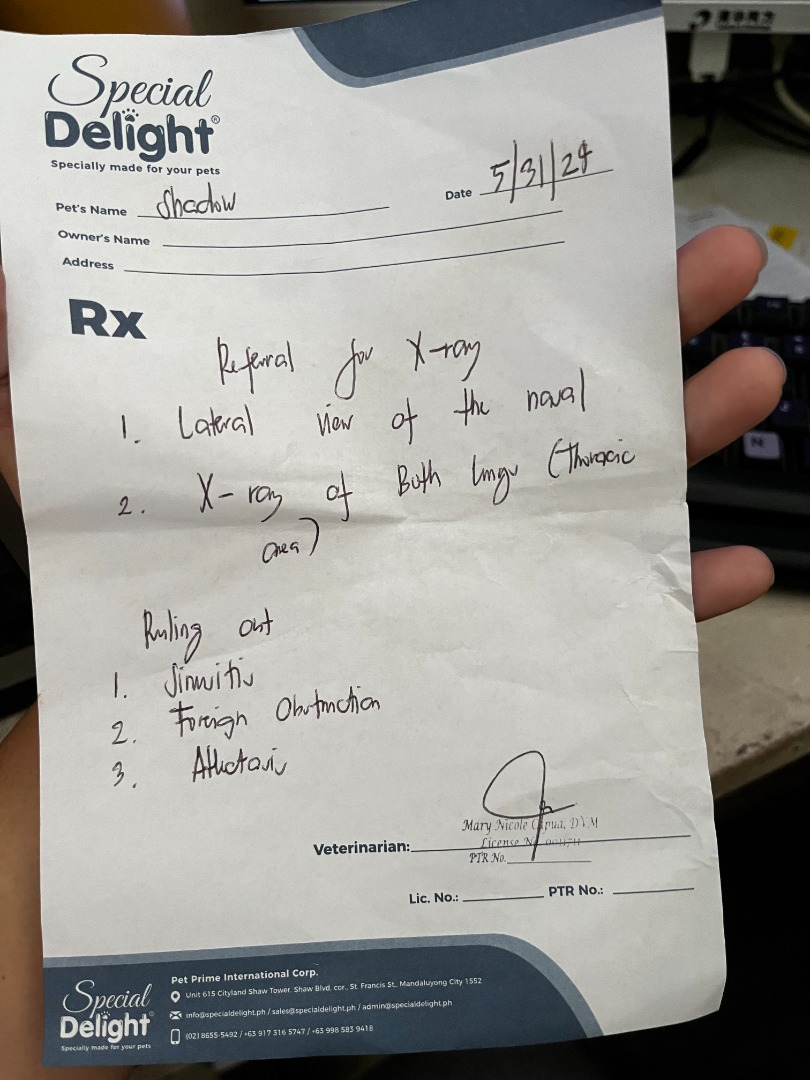 Special
Delight®
Specially made for your pets
Pet's Name Shadow
Date 5/31/24
Owner's Name
Address
Rx
Referral for X-ray
1. Lateral view of the nasal
2. X-ray of Both lungs (Thoracic
area)
Ruling out
1. Sinusitis
2. Foreign Obstruction
3. Atlectasis
Mary Nicole DVM
License No.
Veterinarian:
PTR No.
Lic. No.: PTR No.:
Special
Delight
Specially made for your pets
Pet Prime International Corp.
Unit 615 Cityland Shaw Tower, Shaw Blvd. cor., St. Francis St., Mandaluyong City 1552
info@specialdelight.ph / sales@specialdelight.ph / admin@specialdelight.ph
(02) 8655-5492 / +63 917 316 5747 / +63 998 583 9418
N